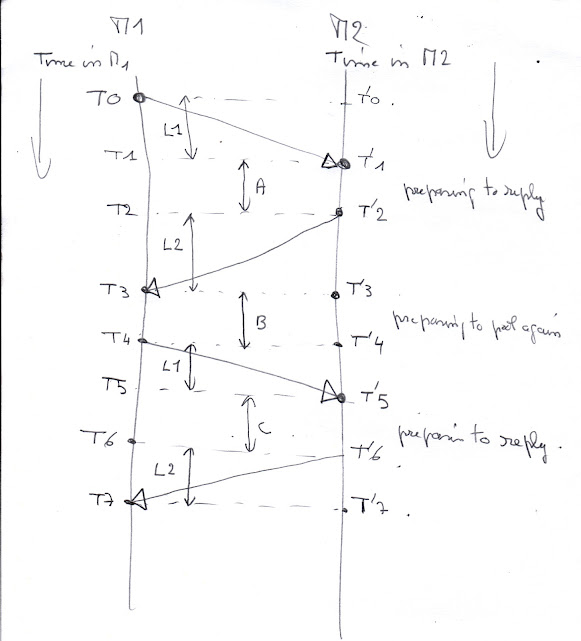 M1 M2
Time in M1 Time in M2
T0 T'0.
L1
T1 T'1
A preparing to reply
T2 T'2
L2
T3 T'3
B preparing to poll again
T4 T'4
L1
T5 T'5
C preparin to reply.
T6 T'6
L2
T7 T'7.